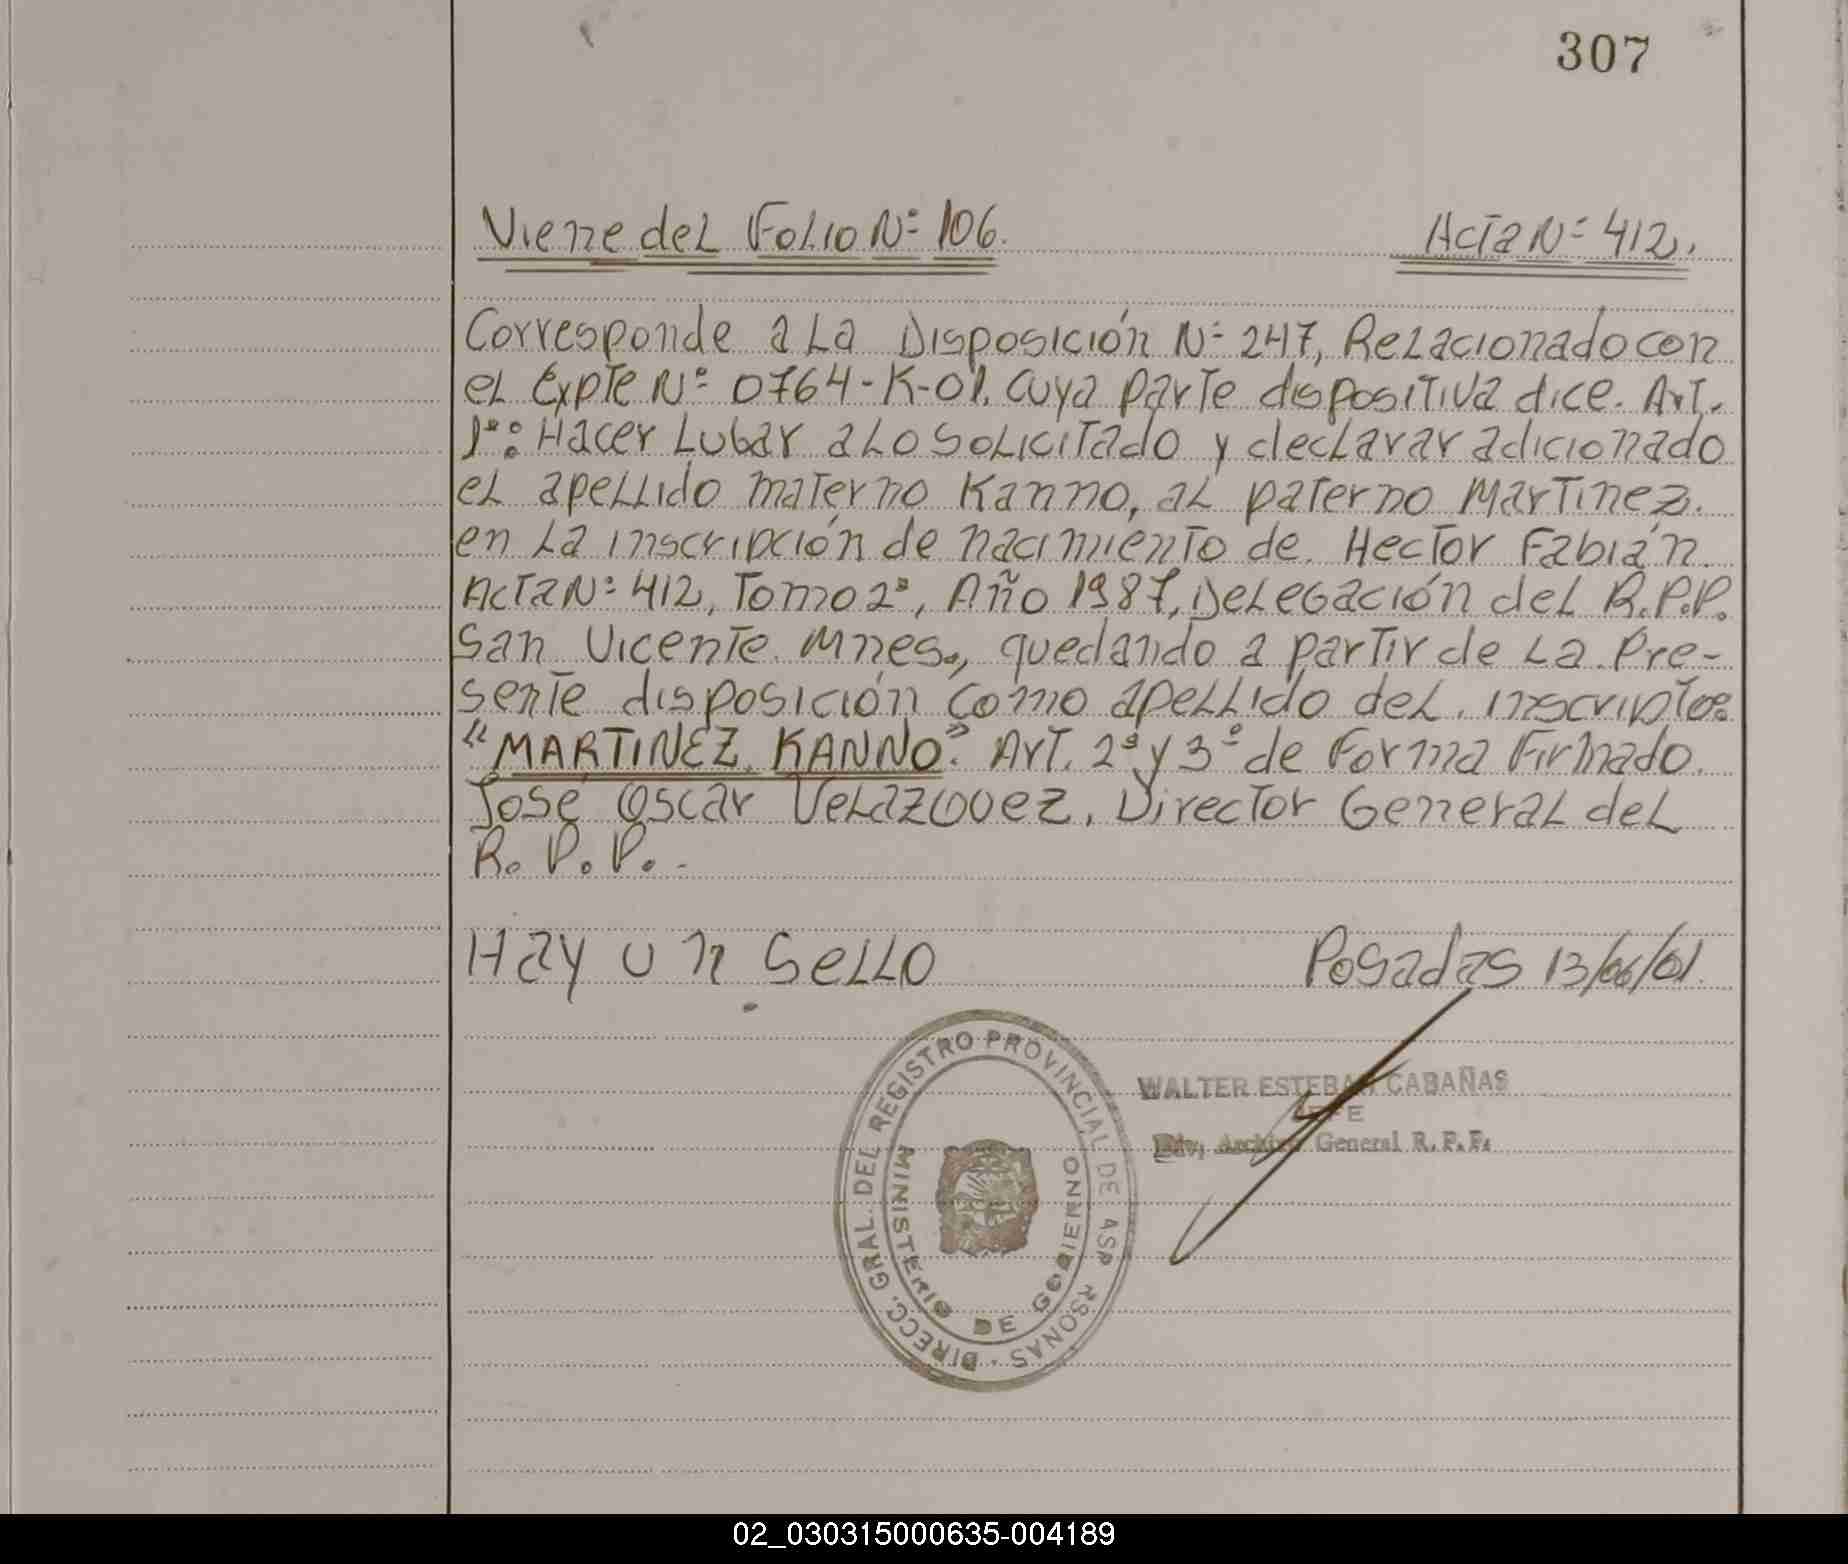 307
Viene del Folio Nº 106.
Acta Nº 412.
Corresponde a La Disposición Nº 247, Relacionado con
el Expte Nº 0764-K-01. cuya parte dispositiva dice. Art.
1º: Hacer Lugar a Lo Solicitado y declarar adicionado
el apellido materno Kanno, al paterno Martinez.
en La inscripción de nacimiento de Hector Fabián.
Acta Nº 412, Tomo 2º, Año 1987, Delegación del R.P.P.
San Vicente Mnes., quedando a partir de La Pre-
sente disposición como apellido del inscripto:
"MARTINEZ KANNO". Art. 2º y 3º de Forma Firmado.
José Oscar Velazquez, Director General del
R. P. P. -
Hay un Sello
Posadas 13/06/01.
DIRECC. GRAL. DEL REGISTRO PROVINCIAL DE
RSONAS
MINISTERIO DE GOBIERNO
WALTER ESTEBAN CABAÑAS
JEFE
Div. Archivo General R. P. P.
02_030315000635-004189